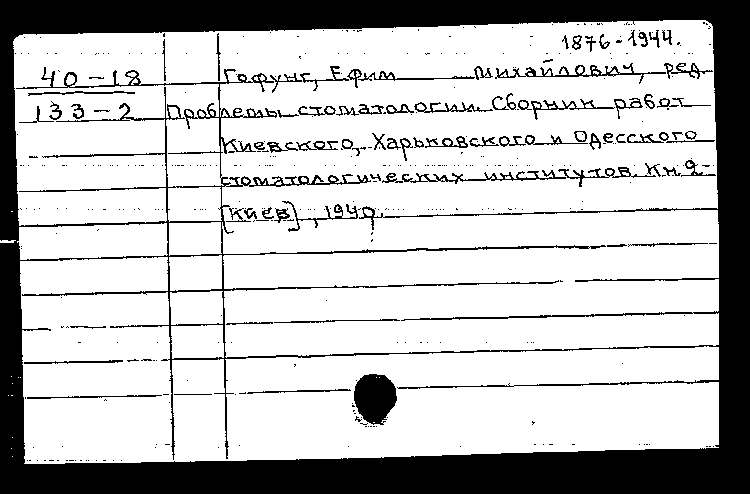 1876-1944.
40-18 Гофунг, Ефим Михайлович, ред.
133-2 Проблемы стоматологии. Сборник работ
Киевского, Харьковского и Одесского
стоматологических институтов. Кн. 2-
[Киев], 1940.